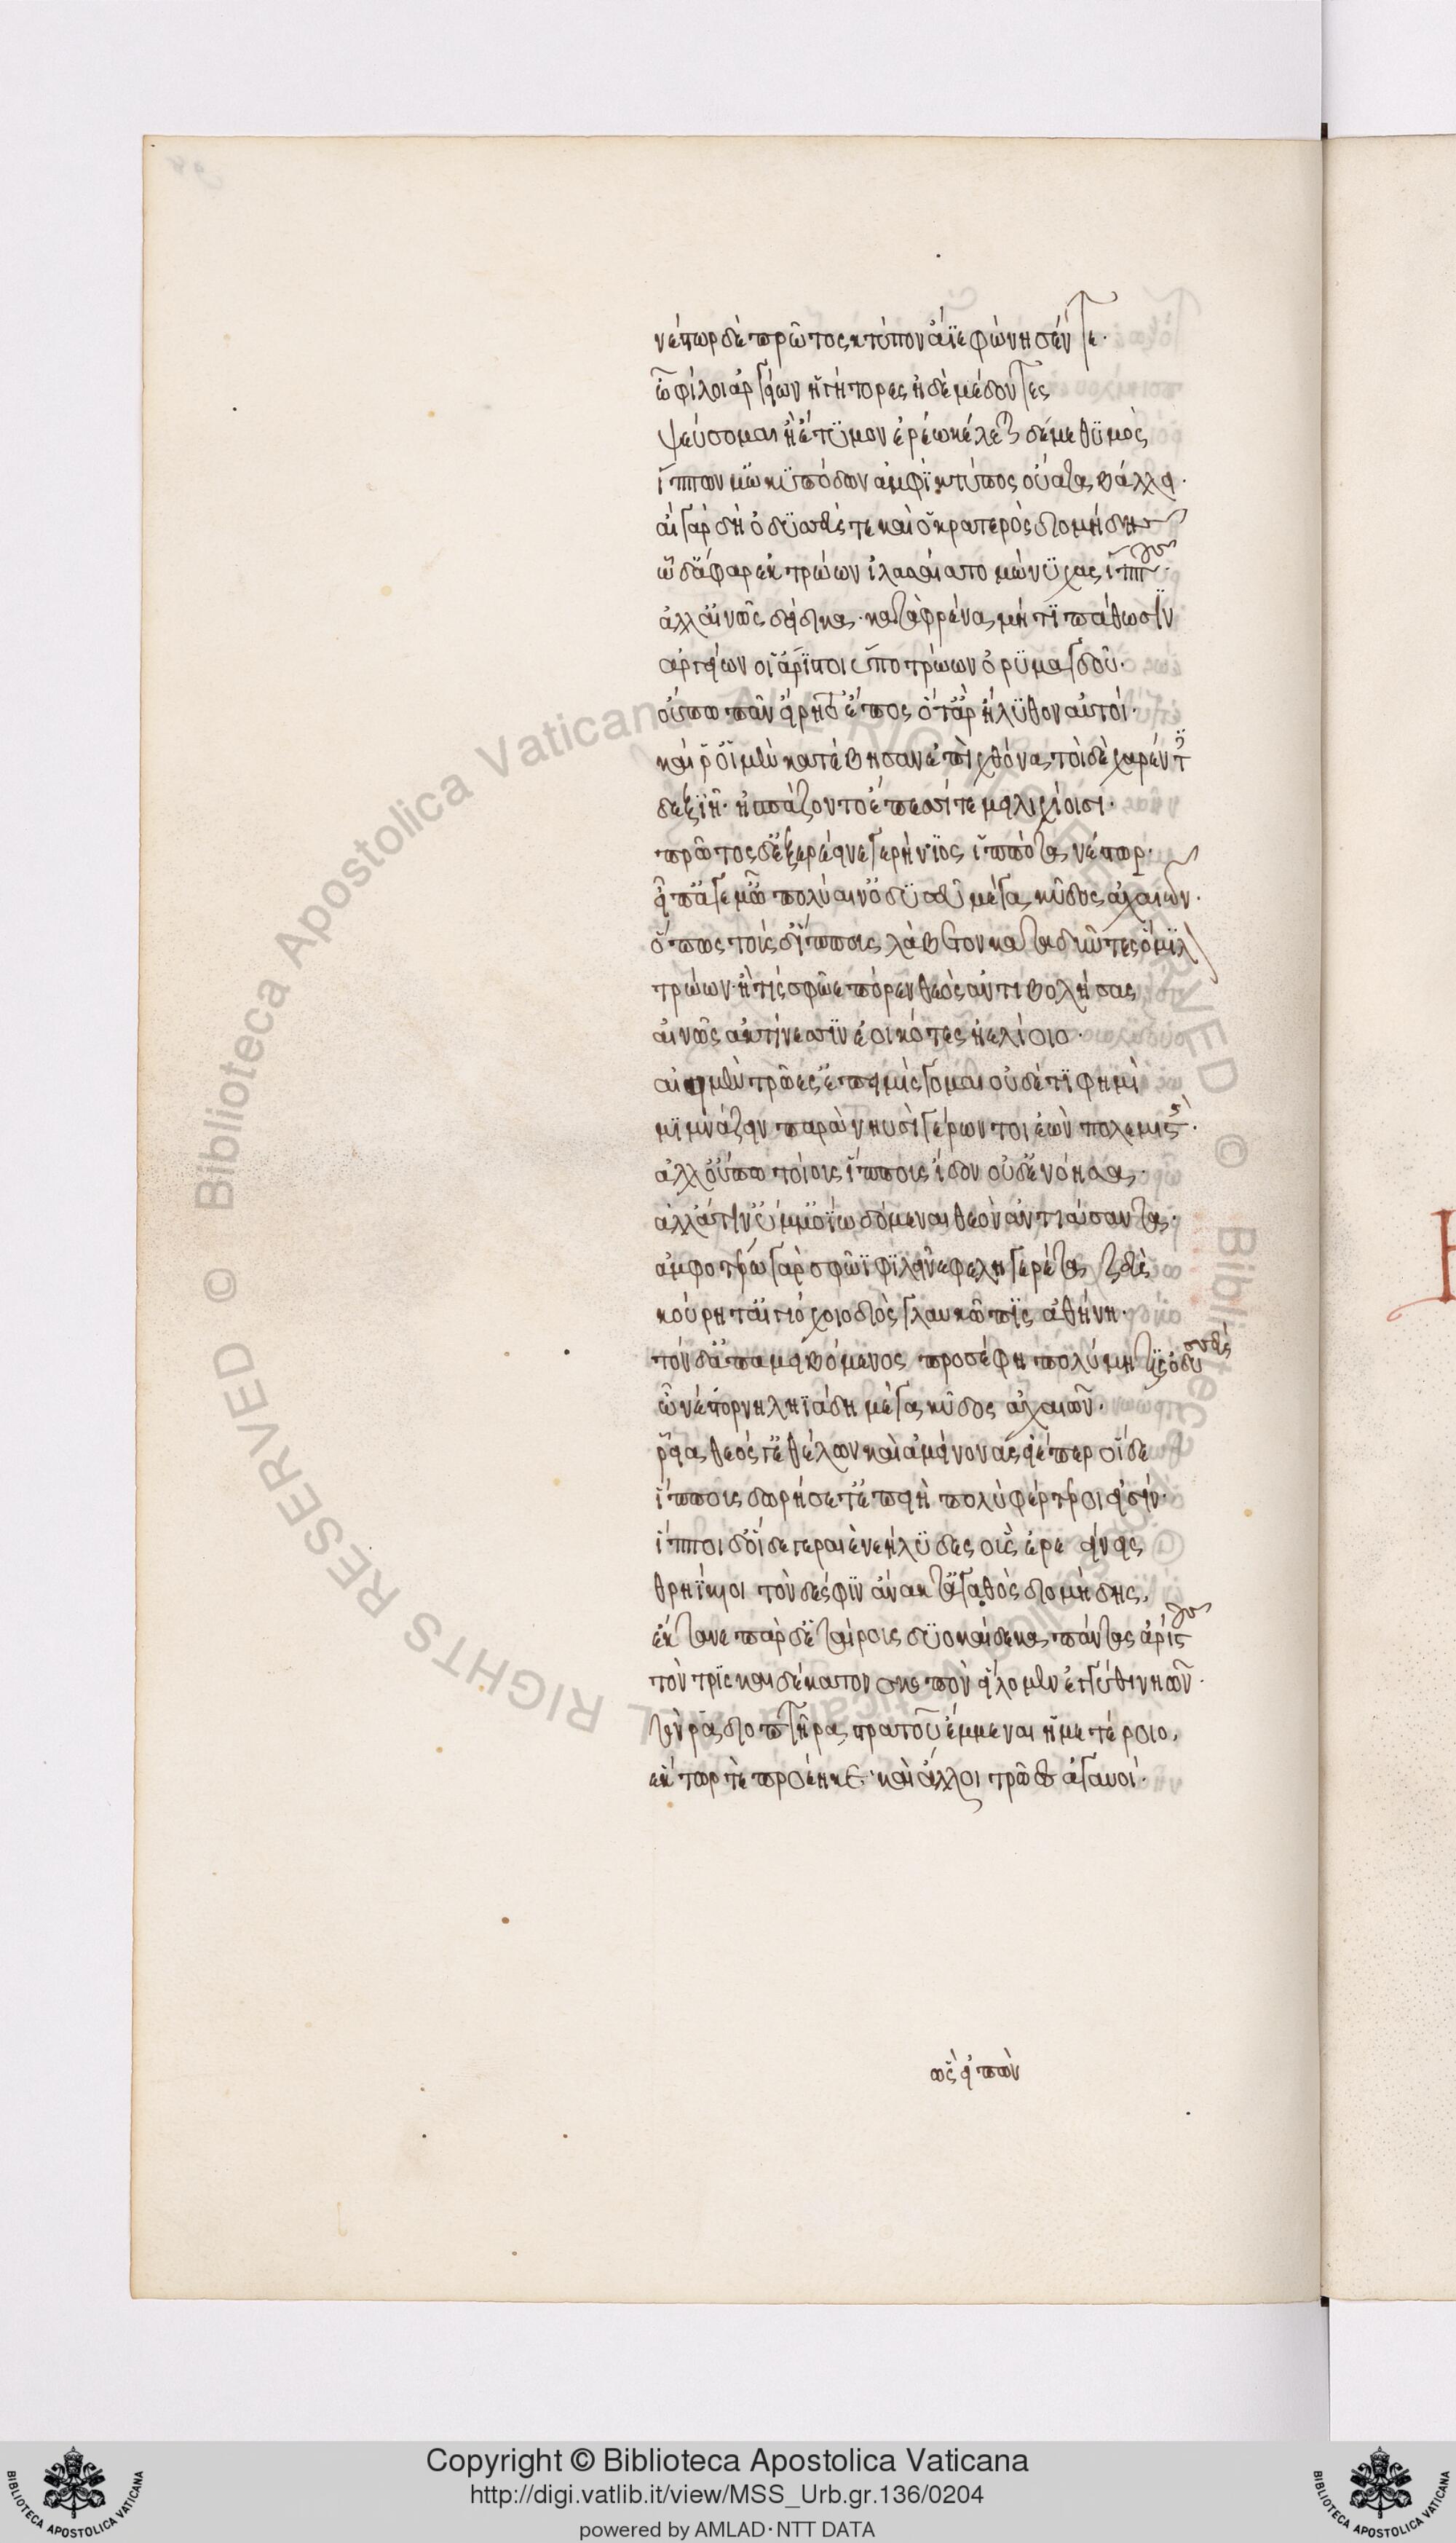 νέστωρ δὲ πρῶτος κτύπον ἄϊε φώνησέν τε·
ὦ φίλοι ἀργείων ἡγήτορες ἠδὲ μέδοντες
ψεύσομαι ἢ ἔτϋμον ἐρέω κέλεται δέ με θϋμὸς
ἵππων μ' ὠκϋπόδων ἀμφὶ κτύπος οὔατα βάλλει·
αἲ γὰρ δὴ ὀδϋσεύς τε καὶ ὁ κρατερὸς διομήδης
ὧδ' ἄφαρ ἐκ τρώων ἐλασαίατο μώνϋχας ἵππους·
ἀλλ' αἰνῶς δείδοικα· κατὰ φρένα μή τι πάθωσιν
ἀργείων οἱ ἄριστοι ὑπὸ τρώων ὀρϋμαγδοῦ·
οὔπω πᾶν εἴρητ' ἔπος ὅτ' ἄρ' ἤλϋθον αὐτοί·
καί ῥ' οἱ μὲν κατέβησαν ἐπὶ χθόνα, τοὶ δὲ χαρέντες
δεξιῇ· ἠσπάζοντο ἔπεσί τε μειλιχίοισι·
πρῶτος δ' ἐξερέεινε γερήνιος ἱππότα νέστωρ·
εἴπ' ἄγε μ' ὦ πολύαιν' ὀδϋσεῦ μέγα κῦδος ἀχαιῶν·
ὅππως τούσδ' ἵππους λάβετον καταδύντες ὅμιλον
τρώων· ἤ τίς σφωε πόρεν θεὸς ἀντιβολήσας
αἰνῶς ἀκτίνεσσιν ἐοικότες ἠελίοιο·
αἰεὶ μὲν τρώεσσ' ἐπιμίσγομαι οὐδέ τι φημὶ
μιμνάζειν παρὰ νηυσὶ γέρων τοι ἐὼν πολεμιστὴς·
ἀλλ' οὔπω τοίους ἵππους ἴδον οὐδ' ἐνόησα,
ἀλλά τιν' ὔμμ' ὀΐω δόμεναι θεὸν ἀντιάσαντα·
ἀμφοτέρω γὰρ σφῶϊ φιλεῖ νεφεληγερέτα ζεὺς
κούρη τ' αἰγιόχοιο διὸς γλαυκῶπις ἀθήνη·
τὸν δ' ἀπαμειβόμενος προσέφη πολύμητις ὀδυσσεύς
ὦ νέστορ νηληϊάδη μέγα κῦδος ἀχαιῶν·
ῥεῖα θεός γ' ἐθέλων καὶ ἀμείνονας ἠέπερ οἵδε
ἵππους δωρήσετ' ἐπειὴ πολὺ φέρτεροι εἰσίν·
ἵπποι δ' οἵδε γεραιὲ νεήλϋδες οὓς ἐρεείνεις
θρηΐκιοι τὸν δέ σφιν ἄνακτ' ἀγαθὸς διομήδης,
ἔκτανε πὰρ δ' ἑτάρους δϋοκαίδεκα πάντας ἀρίστους
τὸν τρὶς καὶ δέκατον σκοπὸν εἵλομεν ἐγγύθι νηῶν·
τόν ῥα διοπτῆρα στρατοῦ ἔμμεναι ἡμετέροιο,
ἕκτωρ τε προέηκε· καὶ ἄλλοι τρῶες ἀγαυοί·
ὣς εἰπὼν
Copyright © Biblioteca Apostolica Vaticana
http://digi.vatlib.it/view/MSS_Urb.gr.136/0204
powered by AMLAD·NTT DATA